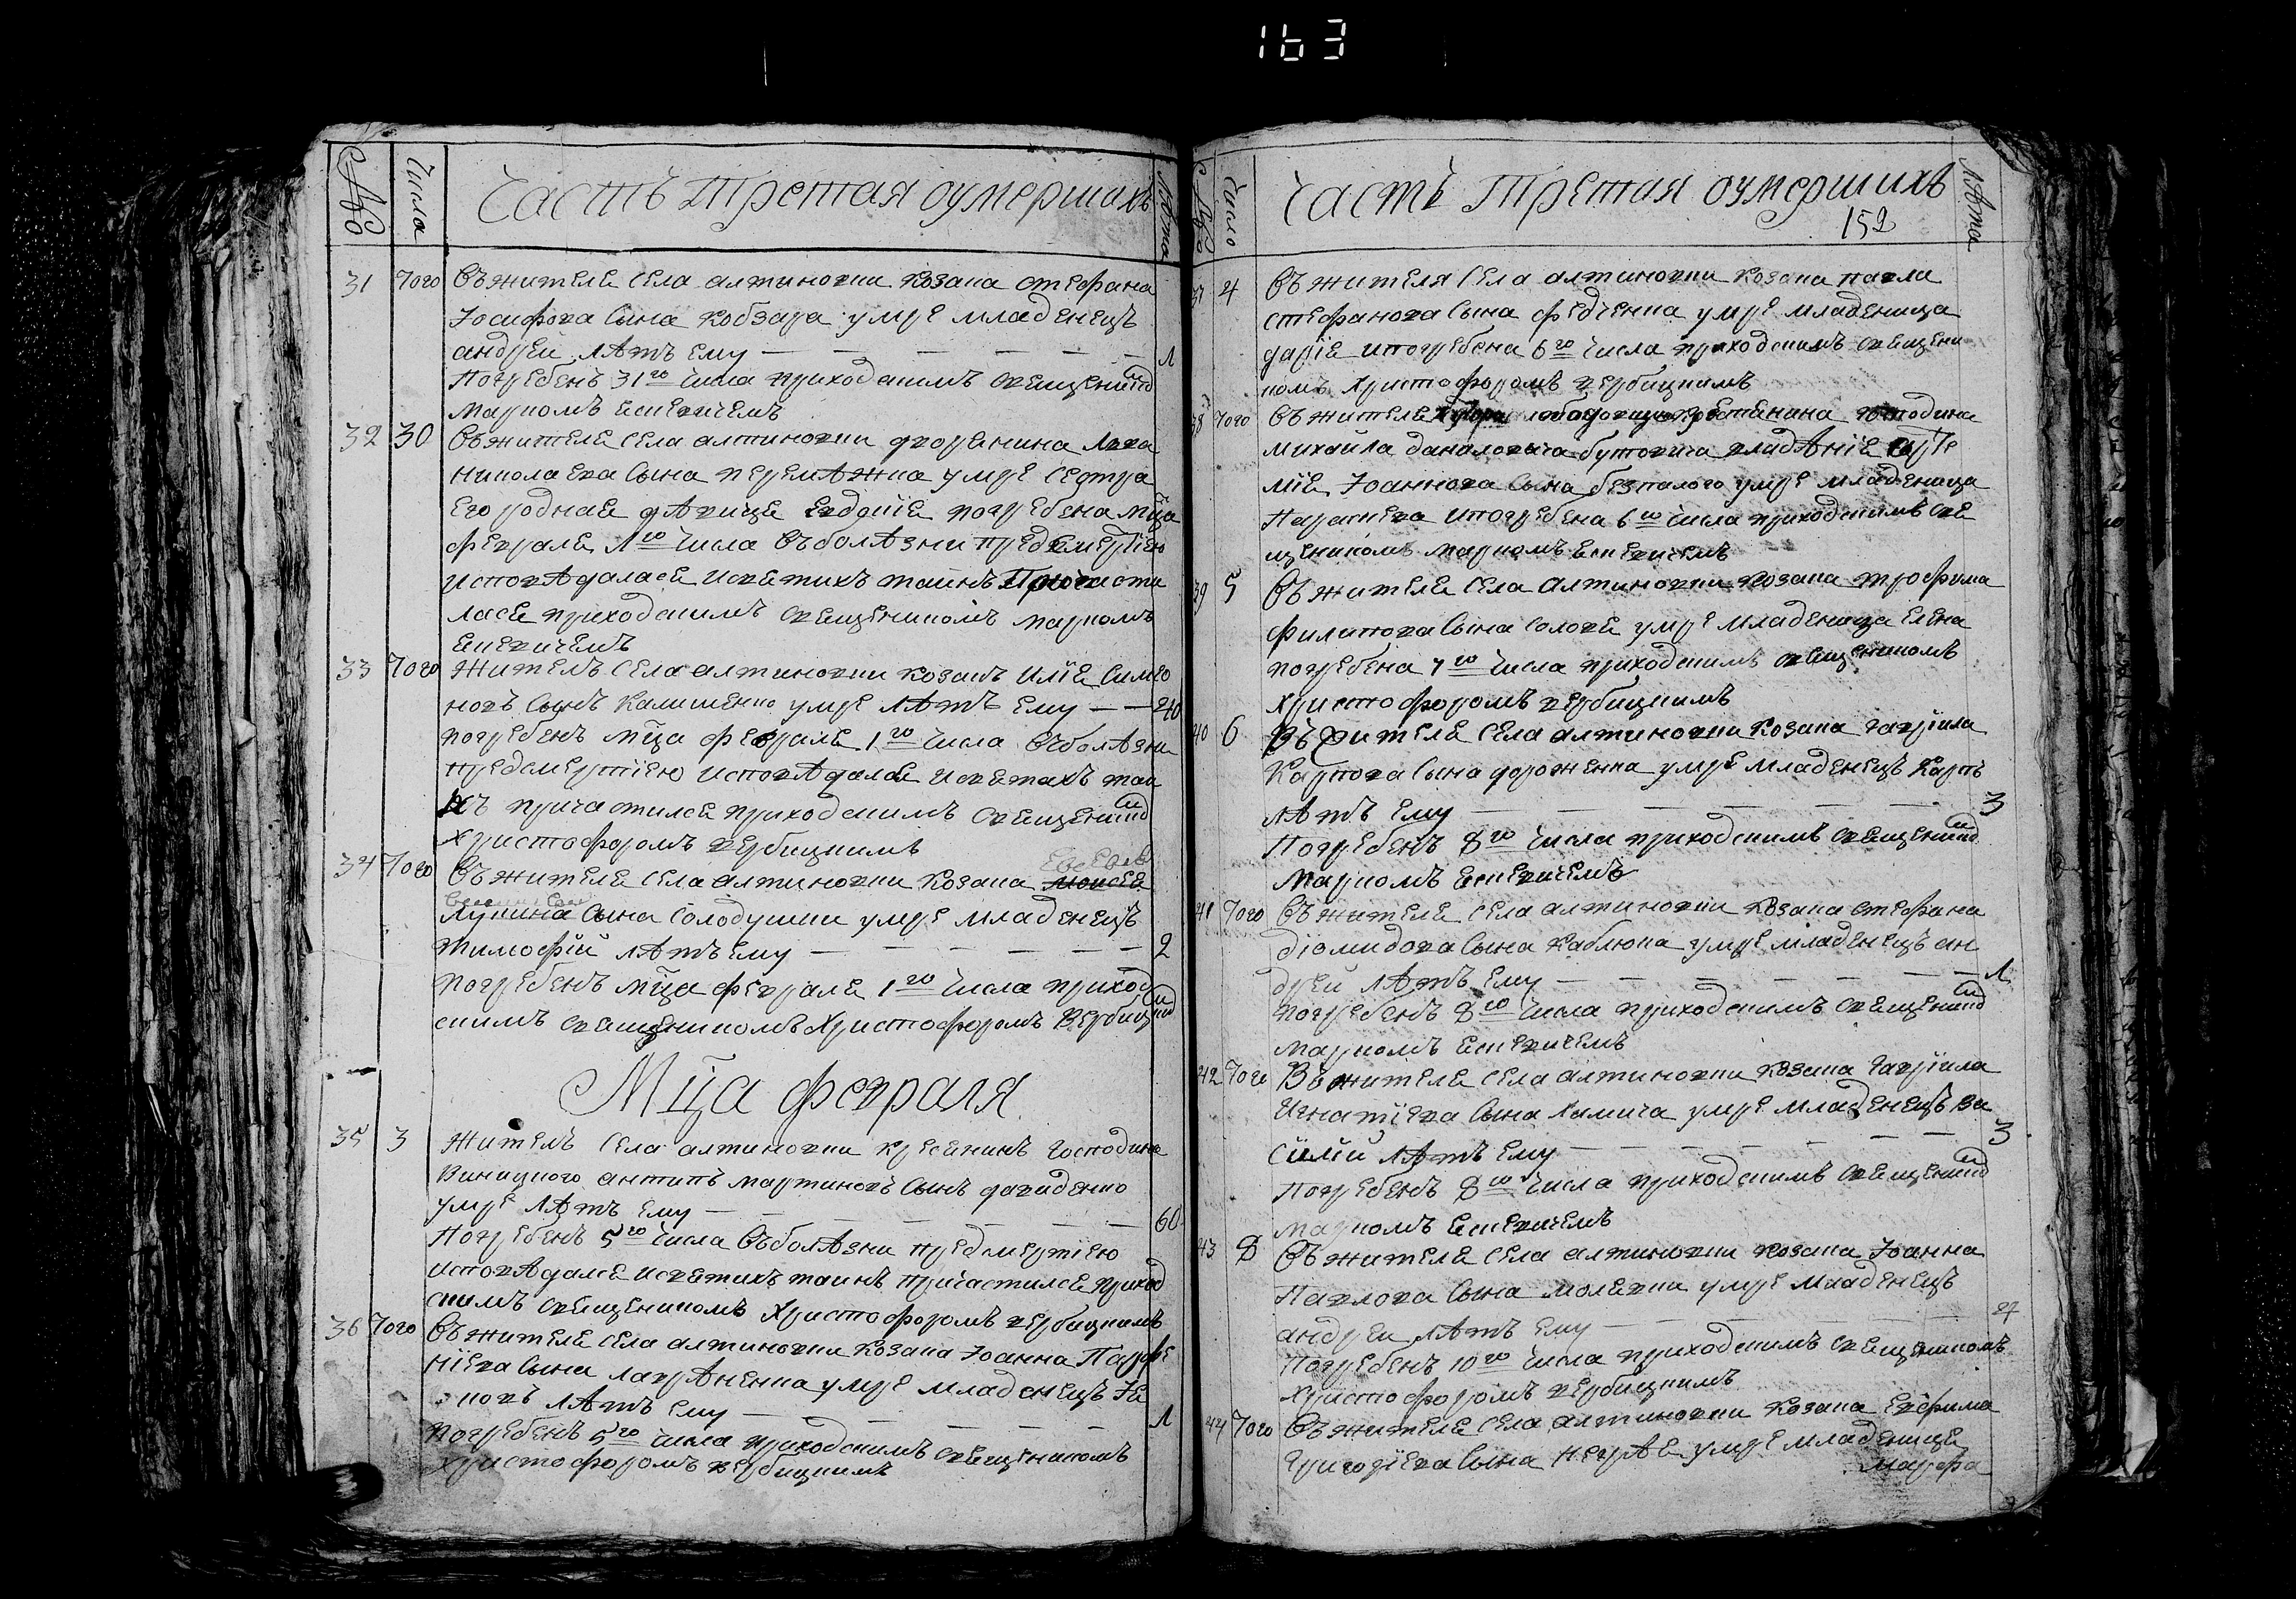 163
№ Числа Часть Третая оумершихъ Лѣта
31 Того Въ жителе села алтиновки козака стефана
Іосифова сына кобзара умре младенецъ
андреи лѣтъ ему — — — — — — 1
Погребенъ 31го числа приходскимъ священикомъ
Маркомъ Еске​вичемъ
32 30 Въ жителе села алтиновки дворенина
николаева сына перемѣжка умре сестра
его роднае дѣвице евдокіе погребена мца
феврале 1го числа въ болѣзни предсмертїею
исповѣдаласе и светихъ таинъ Причасти
ласе приходскимъ священикомъ маркомъ
Ескевичемъ
33 Того Житель села алтиновки козакъ илїе симео
новъ сынъ Калишенко умре лѣтъ ему — — 40
погребенъ мца феврале 1го числа въ болѣзни
предсмертїею исповѣдалсе и светихъ таи
нъ причастилсе приходскимъ священикомъ
Христофоромъ вербицкимъ
34 Того Въ жителе села алтиновки козака моисея
Лукина сына солодушки умре младенецъ
тимофїй лѣтъ ему — — — — — 2
погребенъ мца феврале 1го числа приход
скимъ священикомъ Христофоромъ Вербицким
Мца февраля
35 3 Житель села алтиновки кресянинъ господина
Виницкого антипъ мартиновъ сынъ давиденко
умре лѣтъ ему — — — — — — 60
Погребенъ 5го числа въ болѣзни предсмертїею
исповѣдалсе и светихъ таинъ причастилсе приход
скимъ священикомъ Христофоромъ вербицкимъ
36 Того Въ жителе села алтиновки козака Іоанна Парфе
нїева сына лаврѣненка умре младенецъ
новъ лѣтъ ему — — — — 1
погребенъ 5го числа приходскимъ священикомъ
Христофоромъ вербицкимъ
№ Число Часть Третая оумершихъ Лѣта
152
37 4 Въ жителя села алтиновки козака павла
стефанова сына федченка умре младеница
дарїе и погребена 6го числа приходскимъ священи
комъ Христофоромъ вербицкимъ
38 Того Въ жителе господина
михайла даниловича бутовича владѣнїе
мїе Іоаннова сына безпалого умре младеница
Параскева и погребена 6го числа приходскимъ све
щеникомъ маркомъ Ескевичемъ
39 5 Въ жителе села Алтиновки козака трофима
филипова сына соловя умре младеница Елена
погребена 7го числа приходскимъ священикомъ
Христофоромъ вербицкимъ
40 6 Въ жителе села алтиновки козака гаврїила
Карпова сына дороженка умре младенецъ Карпъ
лѣтъ ему — — — — — 3
Погребенъ 8го числа приходскимъ священикомъ
Маркомъ Ескевичемъ
41 Того Въ жителе села алтиновки козака стефана
дїомидова сына каблюка умре младенецъ ан
дреи лѣтъ ему — — — — — — 1
погребенъ 8го числа приходскимъ священикомъ
маркомъ Ескевичемъ
42 Того Въ жителе села алтиновки козака гаврїила
Игнатїева сына Хамича умре младенецъ Ва
силїи лѣтъ ему — — — — — 3
Погребенъ 8го числа приходскимъ священикомъ
маркомъ Ескевичемъ
43 8 Въ жителе села алтиновки козака Іоанна
Павлова сына молявки умре младенецъ
андреи лѣтъ ему — — — —
Погребенъ 10го числа приходскимъ священикомъ
Христофоромъ вербицкимъ
44 Того Въ жителе села алтиновки козака Евфима
Григорїева сына умре младенице
марфа